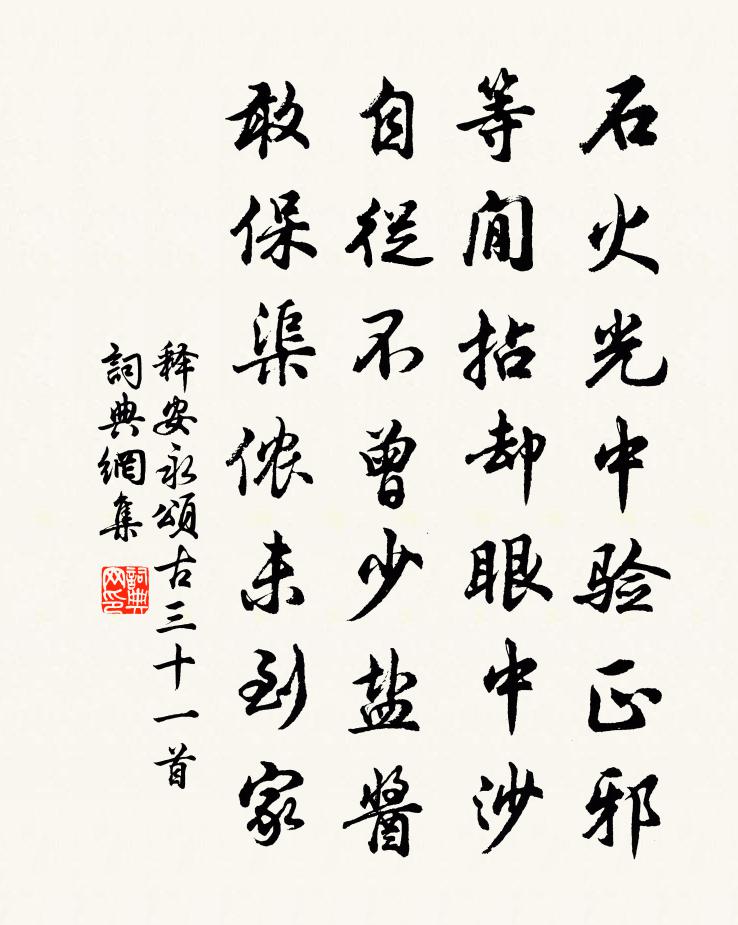 石火光中验正邪
等閒拈却眼中沙
自從不曾少盐醬
敢保渠侬未到家
释安永頌古三十一首
詞典網集
詞典
网印